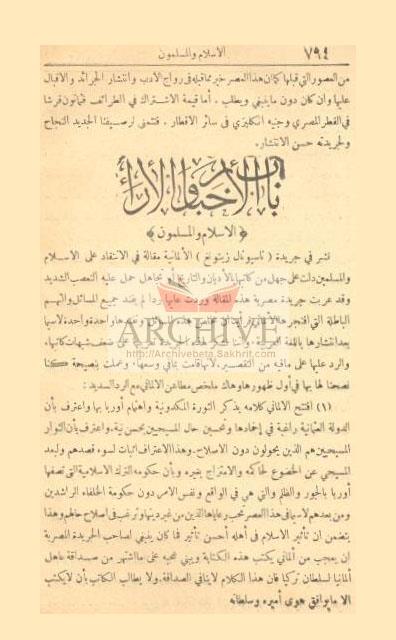 ٧٩٤ الاسلام والمسلمون
من العصور التي قبلها كما ان هذا العصر خير مما قبله في رواج الادب وانتشار الجرائد والاقبال
عليها وان كان دون ما ينبغي ويطلب . أما قيمة الاشتراك في الطرائف فثمانون قرشا
في القطر المصري وجنيه انكليزي في سائر الاقطار . فنتمنى لرصيفنا الجديد النجاح
ولجريدته حسن الانتشار.
باب الأخبار والآراء
﴿ الاسلام والمسلمون ﴾
نشر في جريدة ( ناسيونال زيتونغ ) الألمانية مقالة في الانتقاد على الاسلام
والمسلمين دلت على جهل من كاتبها بالأديان والتاريخ أو تجاهل حمل عليه التعصب الشديد
وقد عربت جريدة مصرية هذه المقالة وردت عليها ردا لم يفند جميع المسائل والتهم
الباطلة التي افتجرها
ARCHIVE
http://Archivebeta.Sakhrit.com
بعد انتشارها باللغة العربية
والرد عليها على مافيه من التقصير
نصحنا لها بها في أول ظهورها وهاك ملخص مطاعن الالماني مع الرد السديد :
(١) افتتح الالماني كلامه بذكر الثورة المكدونية واهتمام أوربا بها واعترف بأن
الدولة العثمانية راغبة في إخمادها وتحسين حال المسيحيين بحسن نية . واعترف بأن الثوار
المسيحيين هم الذين يحولون دون الاصلاح. وهذا الاعتراف اثبات لسوء قصدهم ولبعد
المسيحي عن الخضوع لحاكمه والامتزاج بغيره وبأن حكومة الترك الاسلامية التي تصفها
أوربا بالجور والظلم والتي هي في الواقع ونفس الامر دون حكومة الخلفاء الراشدين
ومن بعدهم لاسيما في هذا العصر تحب رعاياها الذين من غير دينها وترغب في اصلاح حالهم وهذا
يتضمن ان تأثير الاسلام في أهله أحسن تأثير فما كان ينبغي لصاحب الجريدة المصرية
ان يعجب من ألماني يكتب هذه الكتابة ويبني عجبه على ما اشتهر من صداقة عاهل
ألمانيا لسلطان تركيا فان هذا الكلام لا ينافي الصداقة. ولا يطالب الكاتب بأن لا يكتب
الا ما يوافق هوى أميره وسلطانه